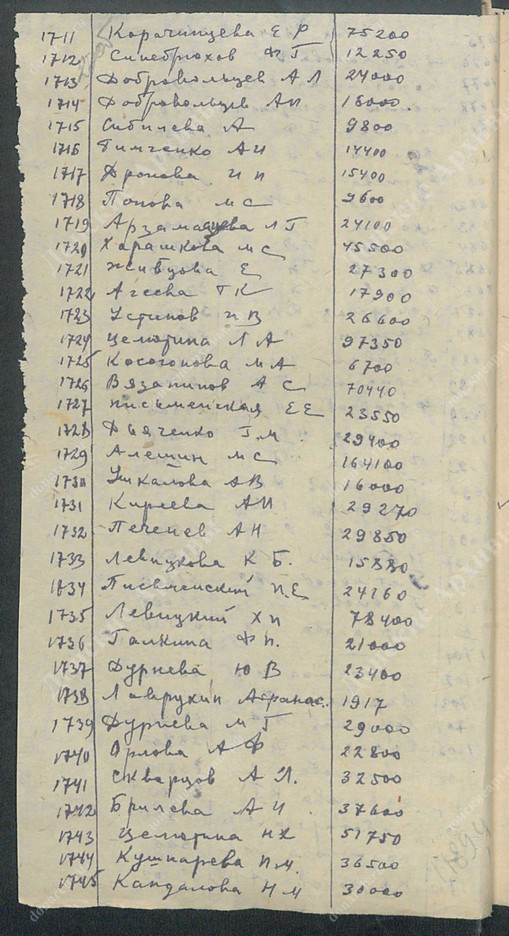 1711 Корачинцева Е Р 75200
1712 Синебрюхов Ф Г 12250
1713 Добровольцев А Л 24000
1714 Добровольцев АП 16000
1715 Сибилева А 9800
1716 Тимченко АИ 14400
1717 Дронова И П 15400
1718 Попова МС 9600
1719 Арзамасцева Л Г 24100
1720 Харашкова МС 45500
1721 Е 27300
1722 Агеева Г К 17900
1723 Устинов И В 26600
1724 Целютина Л А 97350
1725 Косогонова МА 6700
1726 Вязапинов А С 70440
1727 Письменская ЕЕ 23550
1728 Дьяченко Г М 29400
1729 Алешин МС 164100
1730 Ушкалова АВ 16000
1731 Киреева АИ 29270
1732 Печенев АН 29850
1733 Левицкова К Б. 15880
1834 Письменский П Е 24160
1735 Левицкий Х П 78400
1736 Галкина Ф П. 21000
1737 Дурнева Ю В 23400
1738 Лаврухин Афанас. 1917
1739 Дурнева М Г 29000
1740 Орлова А Ф 22800
1741 Скварцов А Л. 32500
1742 Брилева А И 37600
1743 Целютина НХ 51750
1744 Кушнарева П М. 36500
1745 Кандалова Н М 30000